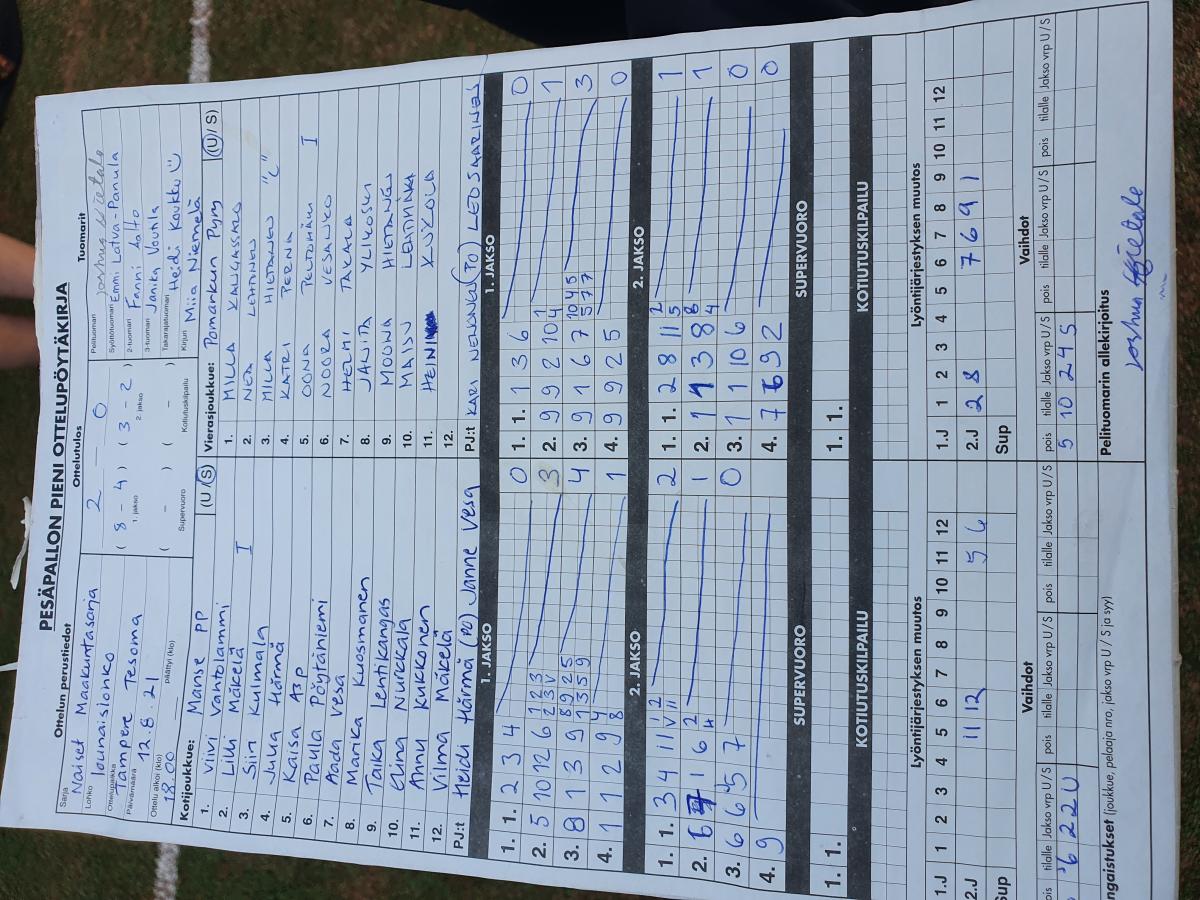 PESÄPALLON PIENI OTTELUPÖYTÄKIRJA
Ottelun perustiedot
Sarja
Naiset Maakuntasarja
Lohko
lounaislohko
Ottelupaikka
Tampere Tesoma
Päivämäärä
12.8.21
Ottelu alkoi (klo) päättyi (klo)
18.00
Ottelutulos
2 0
( 8 - 4 ) ( 3 - 2 )
1. jakso 2. jakso
( - ) ( - )
Supervuoro Kotiutuskilpailu
Tuomarit
Pelituomari
Syöttötuomari Emmi Latva-Panula
2-tuomari Fanni Aalto
3-tuomari Janika Vouhla
Takarajatuomari Heidi Koukku
Kirjuri Miia Niemelä
Kotijoukkue: Manse PP (U/S)
1. Viivi Vantolammi
2. Lilli Mäkelä I
3. Siiri Kulmala
4. Julia Härmä
5. Kaisa Alp
6. Paulla Pöytäniemi
7. Aada Vesa
8. Marika Kuosmanen
9. Taika Lentikangas
10. Elina Nurkkala
11. Annu Kukkonen
12. Vilma Mäkelä
PJ:t Heidi Härmä (PO) Janne Vesa
Vierasjoukkue: Pomarkun Pyry (U/S)
1. MILLA KAUGASSALO
2. NEA LEHTINEN
3. MILLA HIETANEN "C"
4. KATRI PERNIA
5. OONA PELTOMÄKI I
6. NOORA VESANKO
7. HELMI TAKALA
8. JANITA YLIKOSKI
9. MOONA HIETANEN
10. MAIJU LEHTINEN
11. HENI KUKOLA
12.
PJ:t KARI NELKONEN (PO) LEO SAARINEN
1. JAKSO
1. 1. 2 3 4 0
2. 5 10 12 6 3
3. 8 1 3 9 4
4. 1 1 2 9 1
2. JAKSO
1. 1. 3 4 11 2
2. 1 6 1
3. 6 6 5 7 0
4. 9
SUPERVUORO
1. 1.
KOTIUTUSKILPAILU
1. JAKSO
1. 1. 1 3 6 0
2. 9 9 2 10 1
3. 9 1 6 7 3
4. 9 9 2 5 0
2. JAKSO
1. 1. 2 8 11 1
2. 1 1 3 8 1
3. 1 1 10 6 0
4. 7 6 9 2 0
SUPERVUORO
1. 1.
KOTIUTUSKILPAILU
Lyöntijärjestyksen muutos
1.J 1 2 3 4 5 6 7 8 9 10 11 12
2.J 11 12 5 6
Sup
Lyöntijärjestyksen muutos
1.J 1 2 3 4 5 6 7 8 9 10 11 12
2.J 2 8 7 6 9 1
Sup
Vaihdot
pois tilalle Jakso vrp U/S pois tilalle Jakso vrp U/S pois tilalle Jakso vrp U/S
6 2 2 U
Vaihdot
pois tilalle Jakso vrp U/S pois tilalle Jakso vrp U/S pois tilalle Jakso vrp U/S
5 10 2 4 S
ngaistukset (joukkue, pelaaja nro, jakso vrp U / S ja syy)
Pelituomarin allekirjoitus